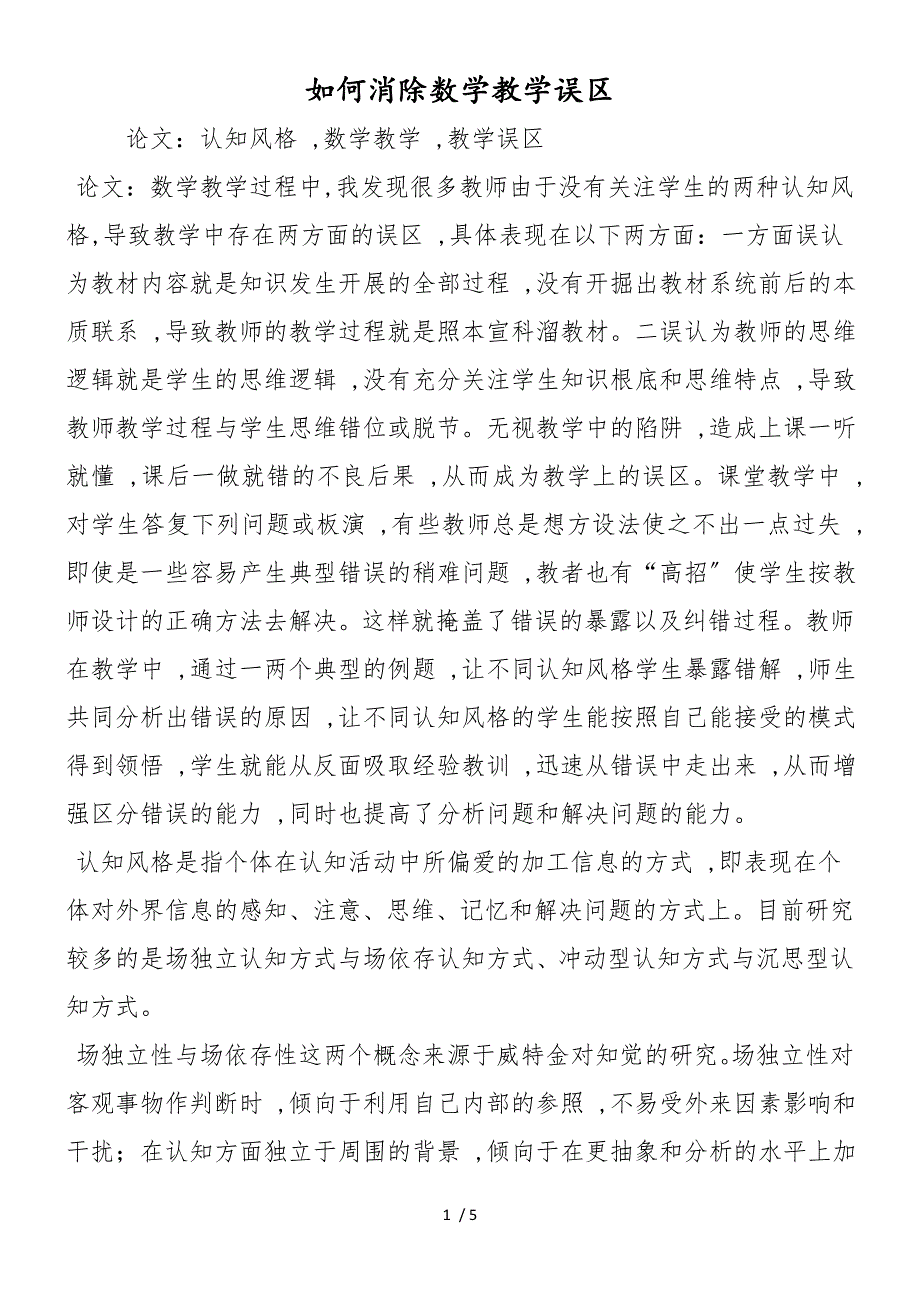 如何消除数学教学误区
论文：认知风格 ,数学教学 ,教学误区
论文：数学教学过程中,我发现很多教师由于没有关注学生的两种认知风
格,导致教学中存在两方面的误区 ,具体表现在以下两方面：一方面误认
为教材内容就是知识发生开展的全部过程 ,没有开掘出教材系统前后的本
质联系 ,导致教师的教学过程就是照本宣科溜教材。二误认为教师的思维
逻辑就是学生的思维逻辑 ,没有充分关注学生知识根底和思维特点 ,导致
教师教学过程与学生思维错位或脱节。无视教学中的陷阱 ,造成上课一听
就懂 ,课后一做就错的不良后果 ,从而成为教学上的误区。课堂教学中 ,
对学生答复下列问题或板演 ,有些教师总是想方设法使之不出一点过失 ,
即使是一些容易产生典型错误的稍难问题 ,教者也有“高招〞使学生按教
师设计的正确方法去解决。这样就掩盖了错误的暴露以及纠错过程。教师
在教学中 ,通过一两个典型的例题 ,让不同认知风格学生暴露错解 ,师生
共同分析出错误的原因 ,让不同认知风格的学生能按照自己能接受的模式
得到领悟 ,学生就能从反面吸取经验教训 ,迅速从错误中走出来 ,从而增
强区分错误的能力 ,同时也提高了分析问题和解决问题的能力。
认知风格是指个体在认知活动中所偏爱的加工信息的方式 ,即表现在个
体对外界信息的感知、注意、思维、记忆和解决问题的方式上。目前研究
较多的是场独立认知方式与场依存认知方式、冲动型认知方式与沉思型认
知方式。
场独立性与场依存性这两个概念来源于威特金对知觉的研究。场独立性对
客观事物作判断时 ,倾向于利用自己内部的参照 ,不易受外来因素影响和
干扰；在认知方面独立于周围的背景 ,倾向于在更抽象和分析的水平上加
1 / 5